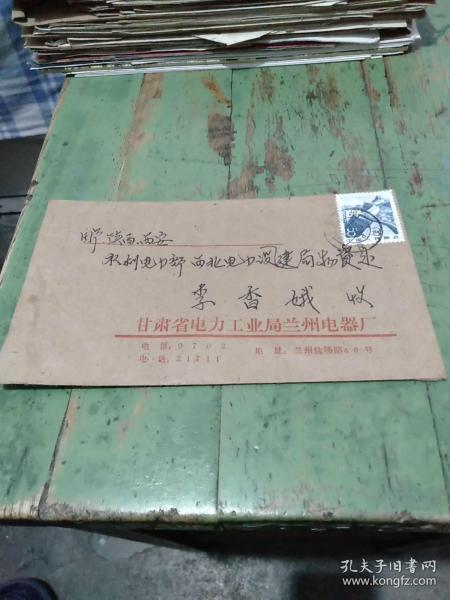 陕西西安
水利电力部 西北电力建局物资处
李香娥 收
甘肃省电力工业局兰州电器厂
电挂:0702
地址:兰州临场路40号
电话:21711
孔夫子旧书网
www.kongfz.com